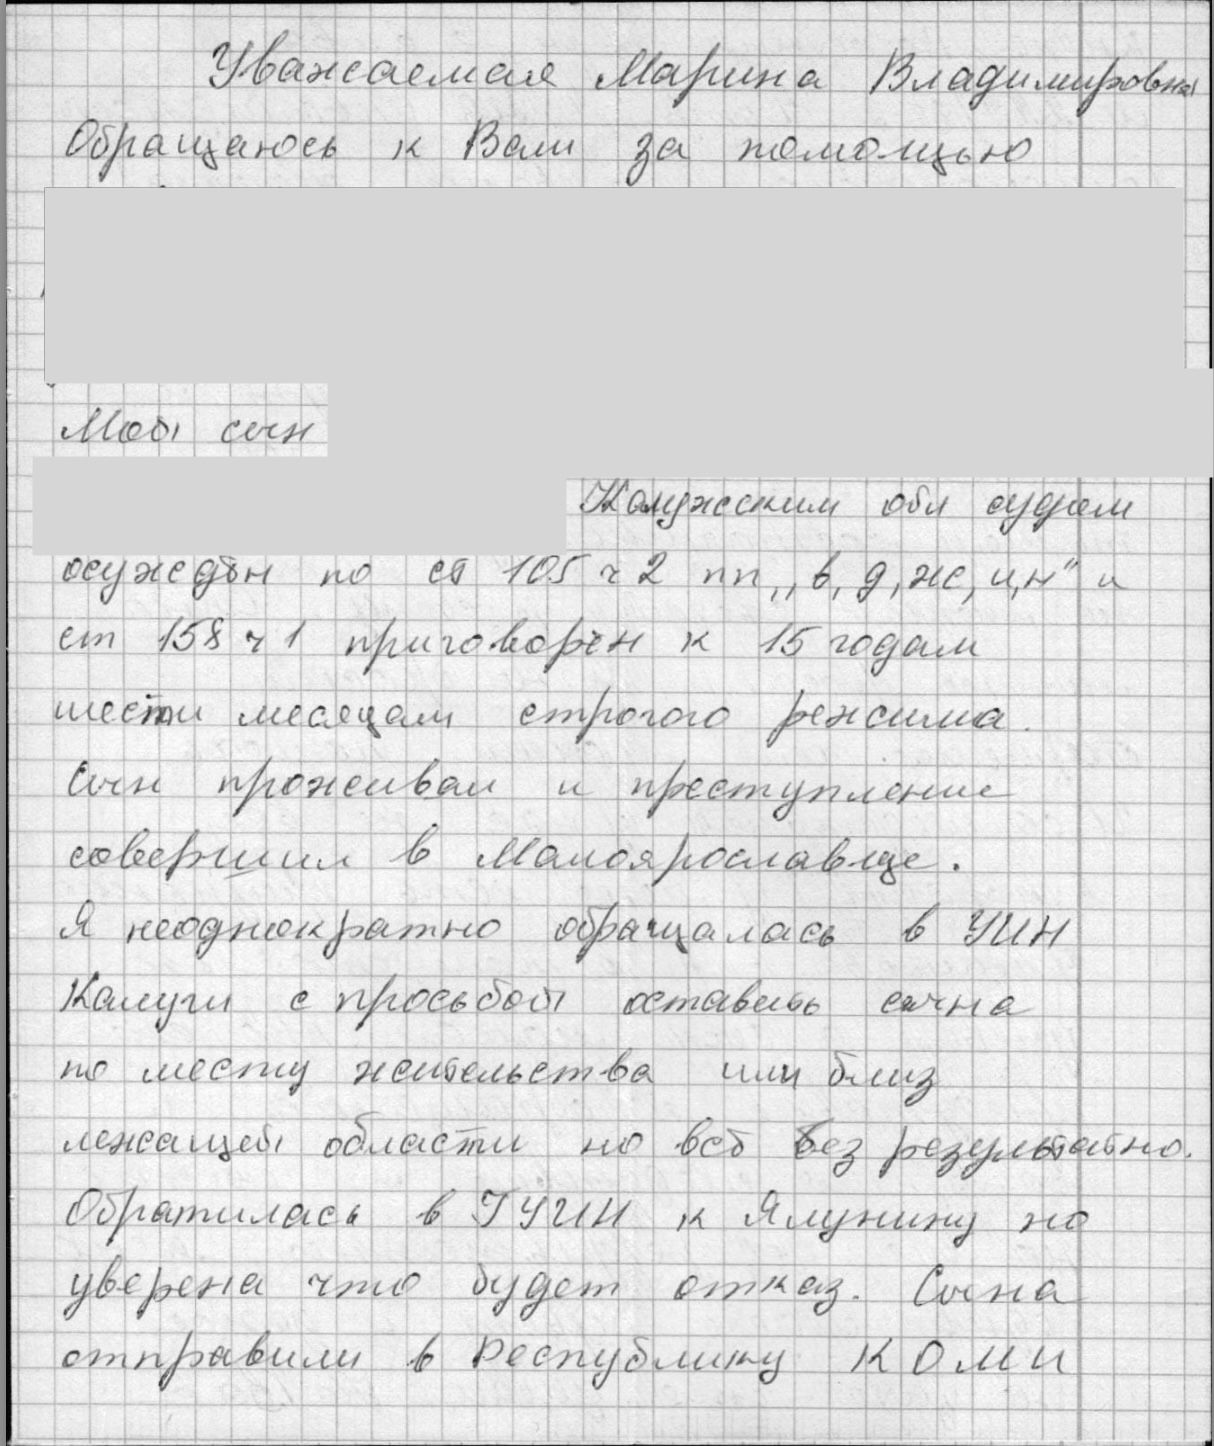 Уважаемая Марина Владимировна
Обращаюсь к Вам за помощью
Мой сын
Калужским обл судом
осуждён по ст 105 ч 2 пп „в, д, ж, и,н" и
ст 158 ч 1 приговорён к 15 годам
шести месяцам строгого режима.
Сын проживал и преступление
совершил в Малоярославце.
Я неоднократно обращалась в УИН
Калуги с просьбой оставить сына
по месту жительства или близ
лежащей области но всё без результатно.
Обратилась в ГУИН к Ялунину но
уверена что будет отказ. Сына
отправили в Республику КОМИ